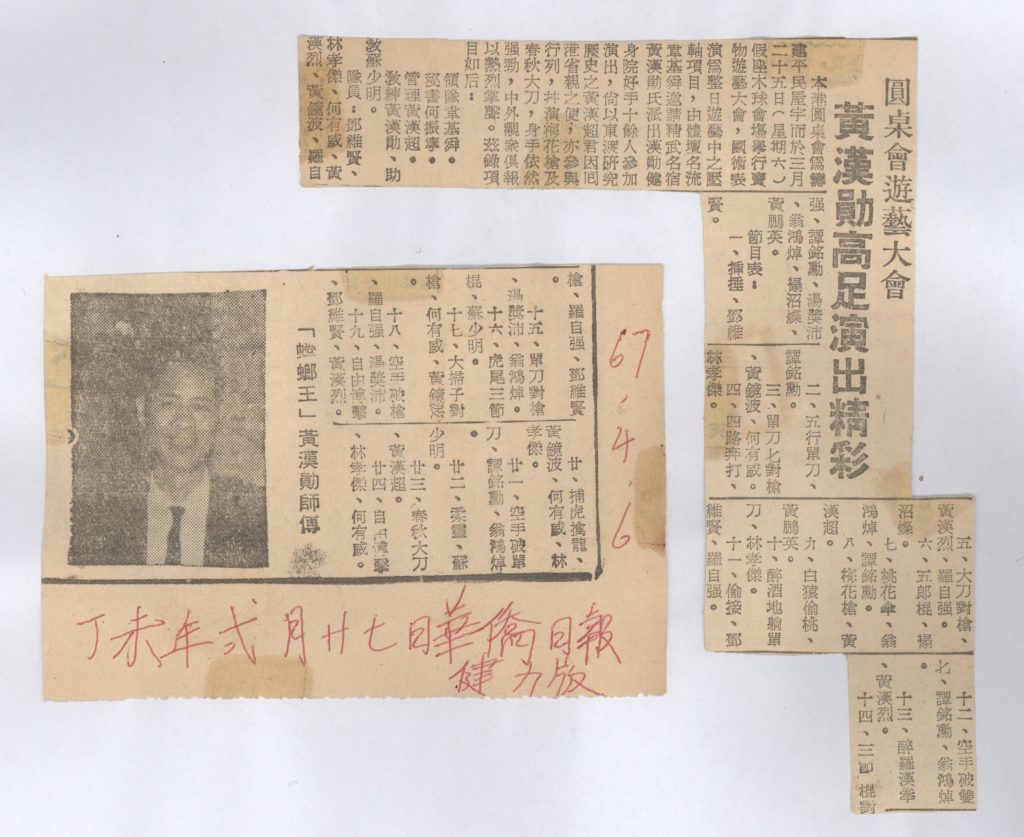 圓桌會遊藝大會
黃漢勛高足演出精彩
本港圓桌會爲籌
建平民屋宇而於三月
二十五日（星期六）
假座木球會塲舉行賣
物遊藝大會，國術表
演爲整日遊藝中之壓
軸項目，由體壇名流
韋基舜邀請精武名宿
黃漢勛氏派出漢勛健
身院好手十餘人參加
演出，尙以東渡研究
歷史之黃漢超君因囘
港省親之便，亦參與
行列，幷演梅花槍及
春秋大刀，身手依然
强勁，中外觀衆俱報
以熱烈掌聲。茲錄項
目如后：
領隊韋基舜。
秘書何振寧。
管理黃漢超。
敎練黃漢勛、助
敎蘇少明。
隊員：鄧維賢、
林孝傑、何有威、黃
漢烈、黃鏡波、羅自
强、譚銘勳、湯奬沛
、翁鴻焯、楊沼燦、
黃鵬英。
節目表：
一、揷捶、鄧維
賢。
二、五行單刀、
譚銘勳。
三、單刀匕對槍
、黃鏡波、何有威。
四、四路奔打、
林孝傑。
五、大刀對槍、
黃漢烈、羅自强。
六、五郎棍、楊
沼燦。
七、桃花傘、翁
鴻焯、譚銘勳。
八、梅花槍、黃
漢超。
九、白猿偷桃、
黃鵬英。
十、醉酒地躺單
刀、林孝傑。
十一、偷按、鄧
維賢、羅自强。
十二、空手破雙
匕、譚銘勳、翁鴻焯
十三、醉羅漢拳
、黃漢烈。
十四、三節棍對
槍、羅自强、鄧維賢
。
十五、單刀對槍
、湯奬沛、翁鴻焯。
十六、虎尾三節
棍、蘇少明。
十七、大掃子對
槍、何有威、黃鏡波
十八、空手破槍
、羅自强、湯奬沛。
十九、自由搏擊
、鄧維賢、黃漢烈。
廿、捕虎擒龍、
黃鏡波、何有威、林
孝傑。
廿一、空手破單
刀、譚銘勳、翁鴻焯
廿二、柔靈、蘇
少明。
廿三、春秋大刀
、黃漢超。
廿四、自由搏擊
、林孝傑、何有威。
「螳螂王」黃漢勛師傅
67.4.6
丁未年弍月廿七日華僑日報
健力版